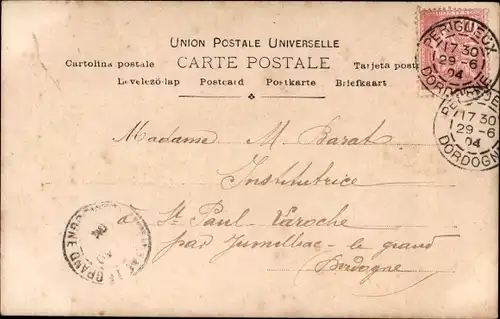 UNION POSTALE UNIVERSELLE
CARTE POSTALE
Cartolina postale
Tarjeta post
Levelező-lap Postcard Postkarte Briefkaart
PÉRIGUEUX
17 30
29 - 6
04
DORDOGNE
17 30
29 - 6
04
DORDOGNE
Madame M. Barat
Institutrice
à St Paul Laroche
par Jumilhac-le grand
Dordogne
LE GRAND
04